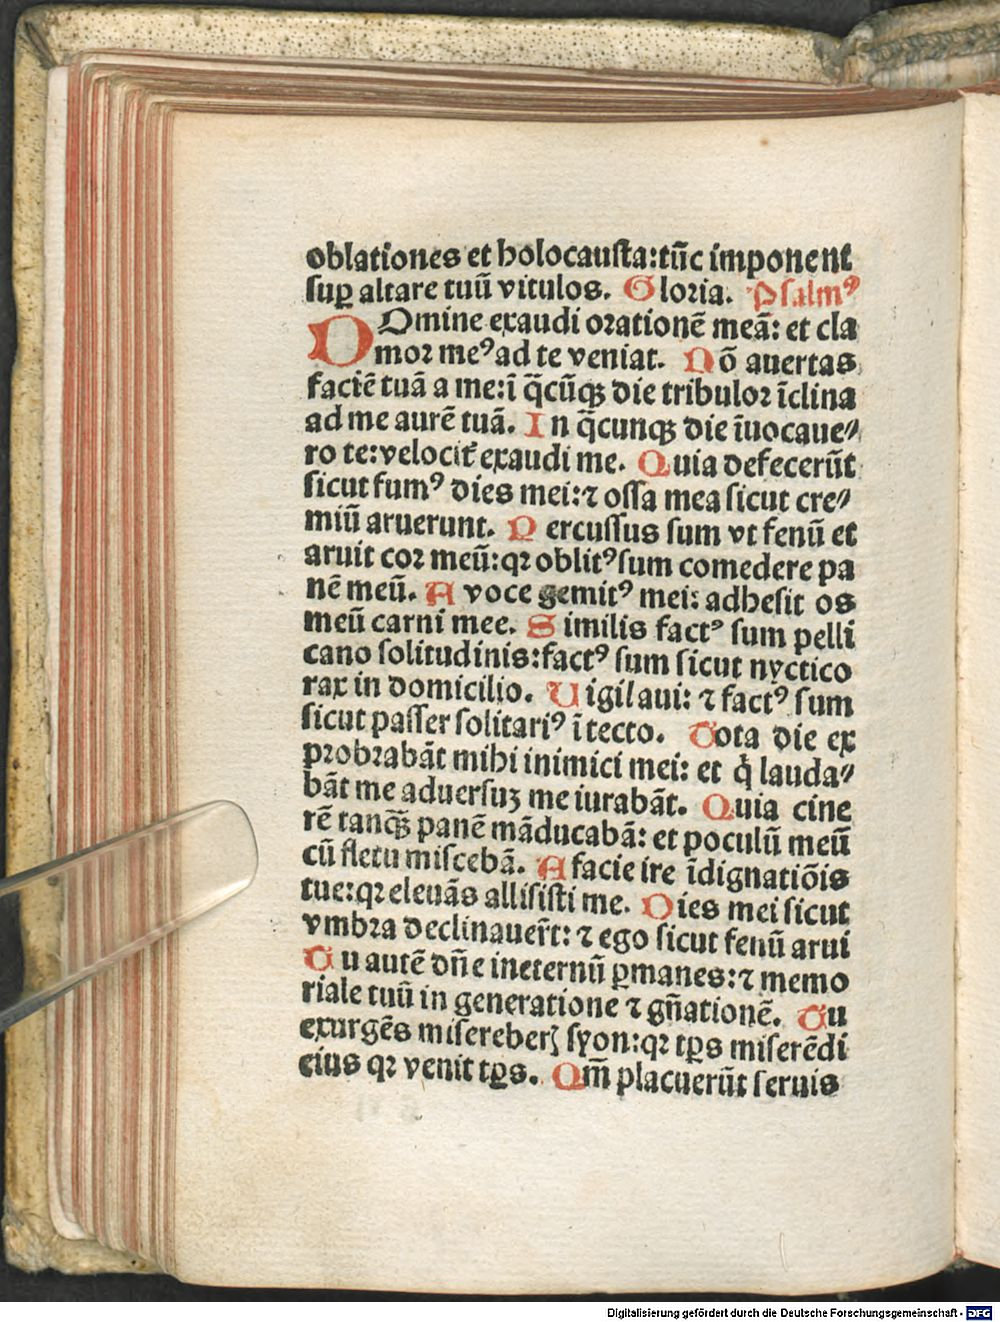 oblationes et holocausta:tūc imponent
suꝑ altare tuū vitulos. Gloria. Psalmꝰ
DOmine exaudi orationē meā: et cla
mor meꝰ ad te veniat. Nō auertas
faciē tuā a me:ī q̄cūqꝫ die tribulor īclina
ad me aurē tuā. In q̄cunqꝫ die īuocaue⸗
ro te:velocit̄ exaudi me. Quia defecerūt
sicut fumꝰ dies mei:⁊ ossa mea sicut cre⸗
miū aruerunt. Percussus sum vt fenū et
aruit cor meū:qꝛ oblitꝰ sum comedere pa
nē meū. A voce gemitꝰ mei: adhesit os
meū carni mee. Similis factꝰ sum pelli
cano solitudinis:factꝰ sum sicut nyctico
rax in domicilio. Uigilaui: ⁊ factꝰ sum
sicut passer solitariꝰ ī tecto. Tota die ex
probrabāt mihi inimici mei: et q̇ lauda⸗
bāt me aduersuꝫ me iurabāt. Quia cine
rē tanqꝫ̄ panē māducabā: et poculū meū
cū fletu miscebā. A facie ire īdignatiōis
tue:qꝛ eleuās allisisti me. Dies mei sicut
vmbra declinauer̄t: ⁊ ego sicut fenū arui
Tu autē dn̄e ineternū ꝑmanes:⁊ memo
riale tuū in generatione ⁊ gn̄ationē. Tu
exurgēs misereberꝭ syon:qꝛ tꝑs miserēdi
eius qꝛ venit tꝑs. Qm̄ placuerūt seruis
Digitalisierung gefördert durch die Deutsche Forschungsgemeinschaft - DFG